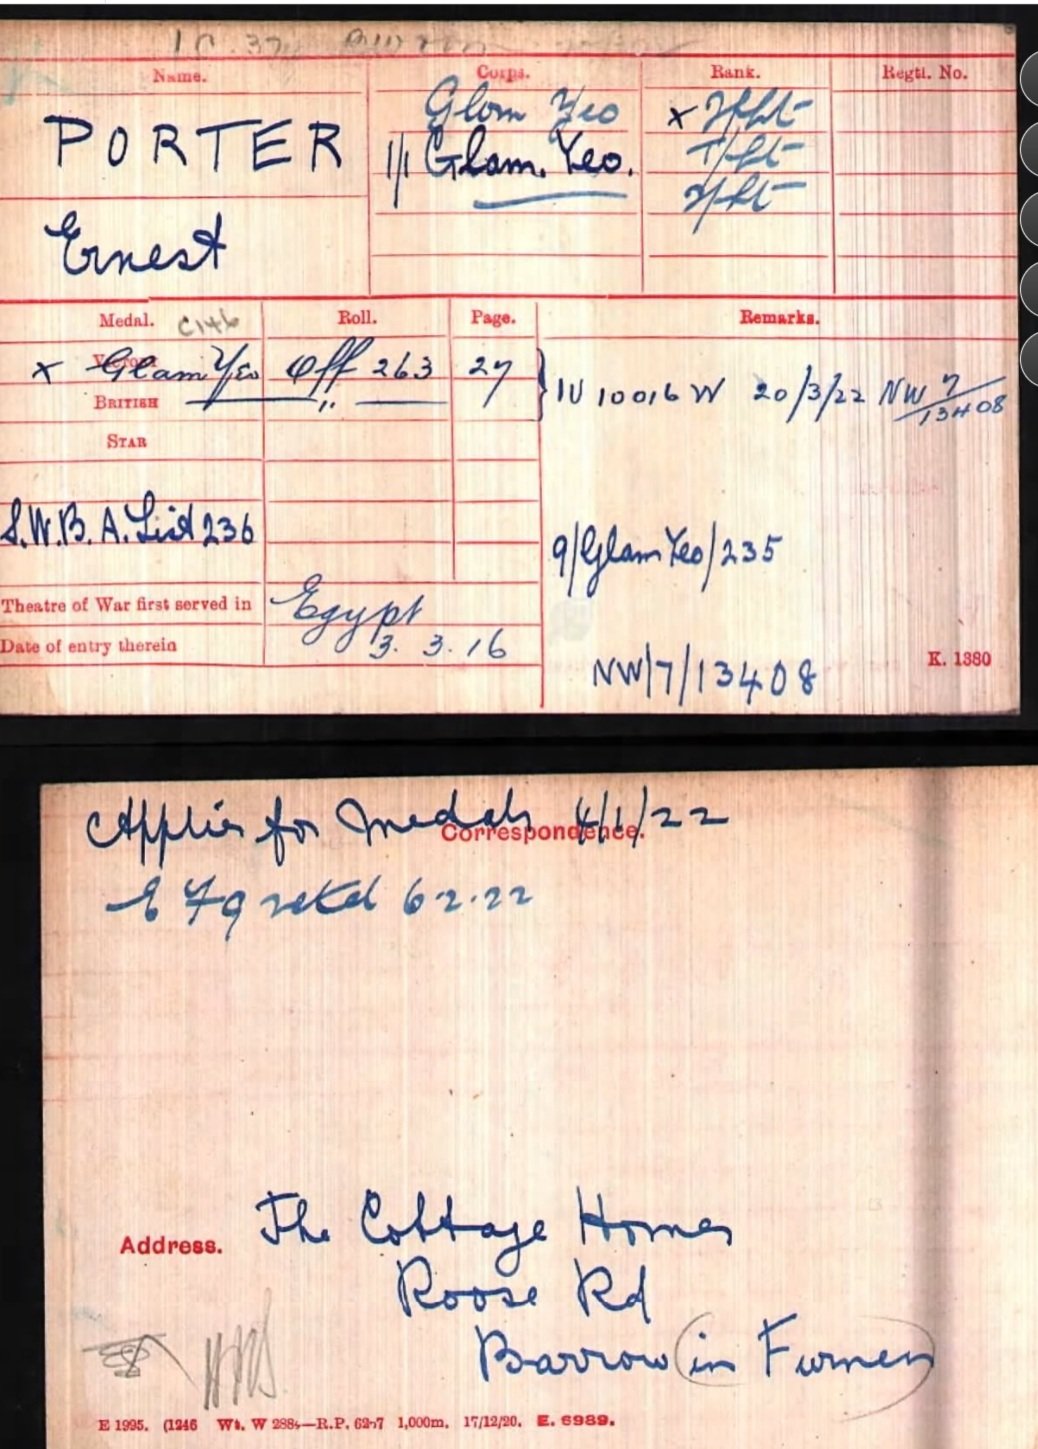 Name.
Corps.
Rank.
Regtl. No.
PORTER
Ernest
Glam Yeo
1/1 Glam. Yeo.
x
T/Lt
Medal.
C146
Roll.
Page.
Remarks.
Victory
x Glam Yeo Off 263 27
BRITISH
"
IV 10016 W 20/3/22 NW 7/13408
STAR
S.W.B. A. List 236
9/Glam Yeo/235
Theatre of War first served in Egypt
Date of entry therein 3.3.16
NW/7/13408
K. 1380
Applies for medals 4/1/22
Correspondence.
6.2.22
Address.
The Cottage Homes
Roose Rd
Barrow (in Furness)
E 1995. (1246 Wt. W 288 —R.P. 62 7 1,000m. 17/12/20. E. 6989.